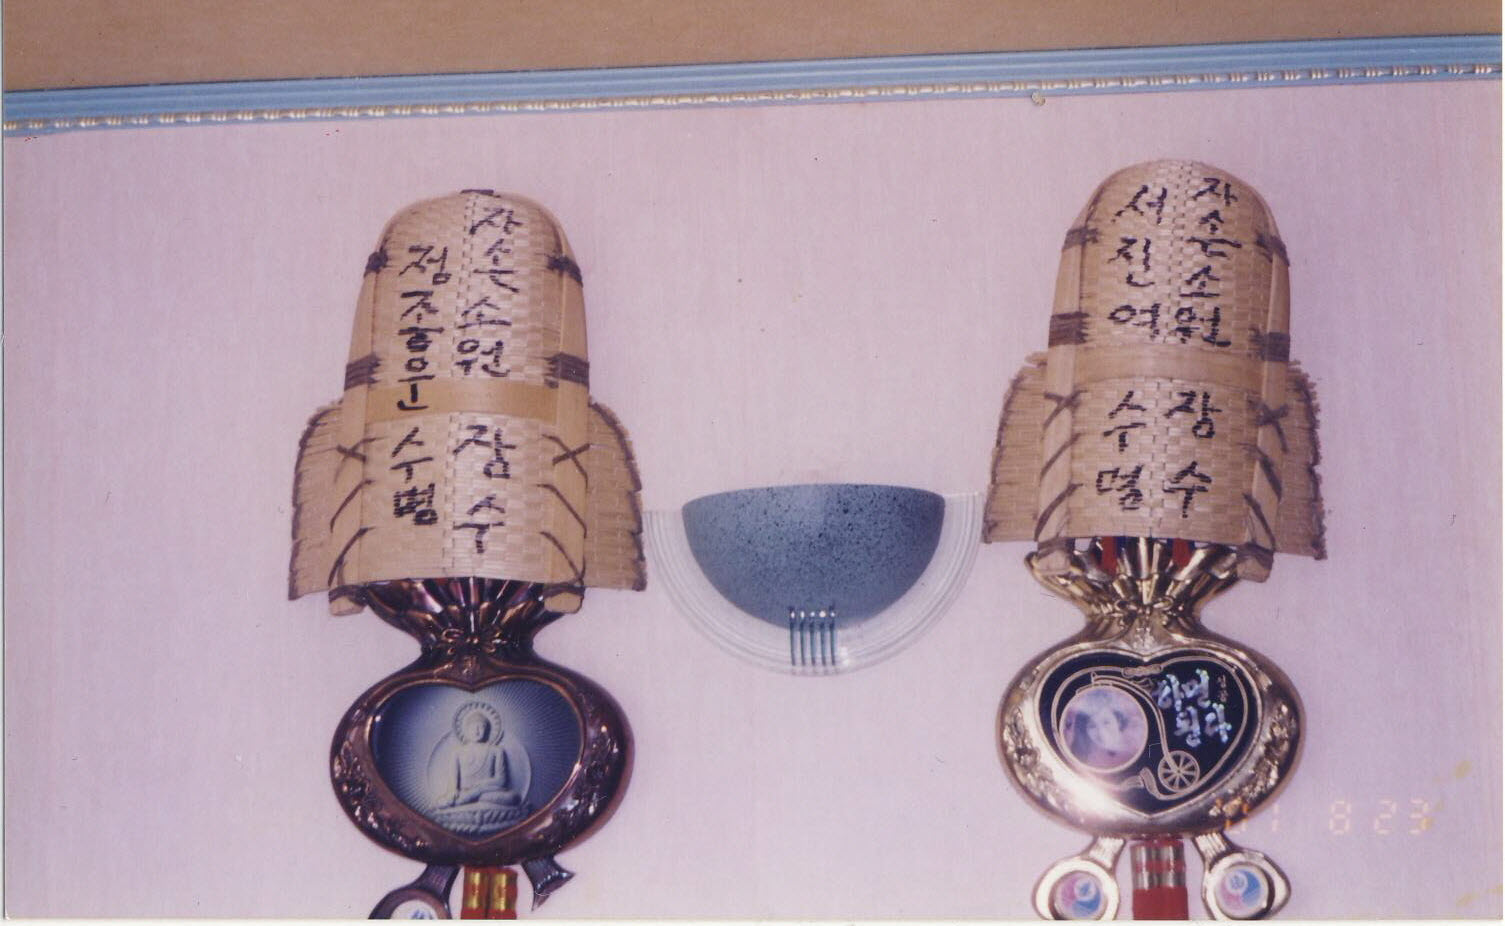 자손소원 장수
수명
자손소원 장수
수명
하면
된다
'01 8 23